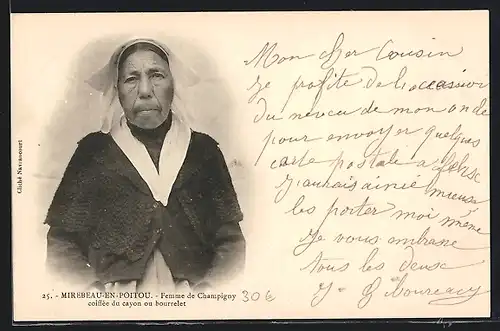 Mon cher Cousin
Je profite de l'occasion
du neveu de mon oncle
pour envoyer quelques
carte postale a
J'aurais aimé mieux
les porter moi même
Je vous embrasse
tous les deux
J.
Cliché Navrancourt
25. - MIREBEAU-EN-POITOU. - Femme de Champigny
coiffée du cayon ou bourrelet
30€